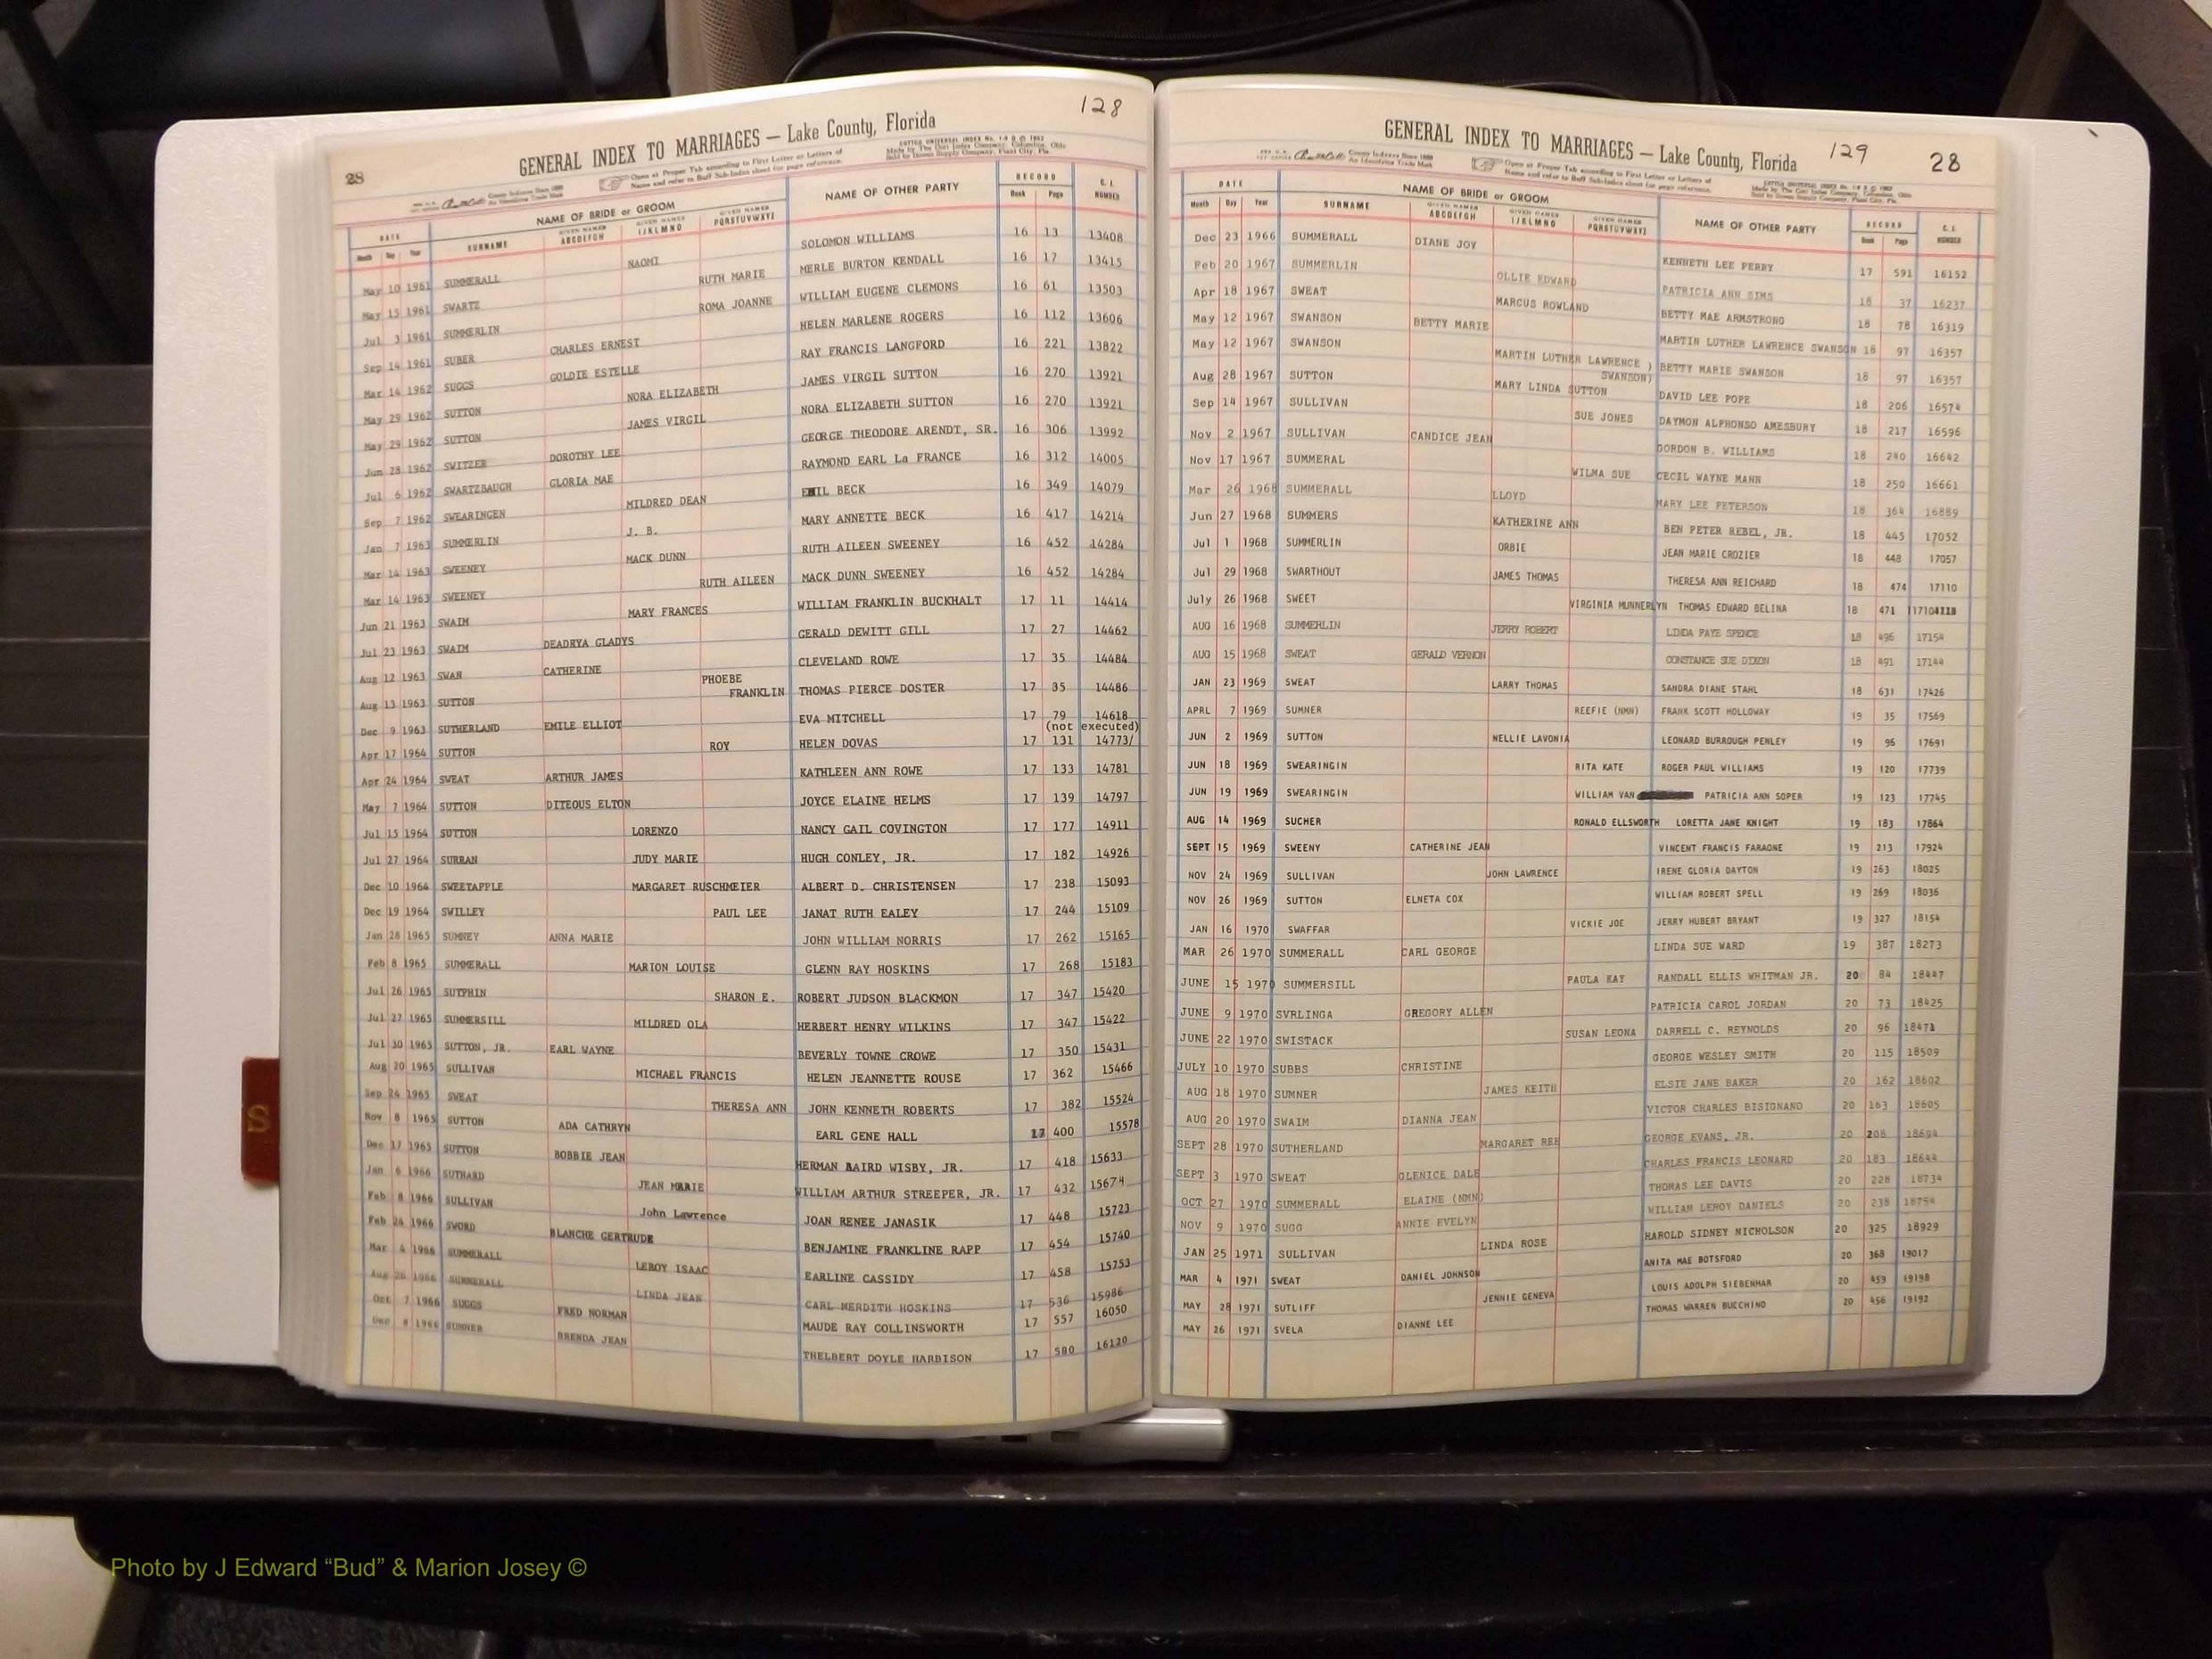 128
GENERAL INDEX TO MARRIAGES — Lake County, Florida
28
Open at Proper Tab according to First Letter or Letters of
Name and refer to Buff Sub-Index sheet for page reference.
DATE NAME OF BRIDE or GROOM NAME OF OTHER PARTY RECORD C. I. NUMBER
Month Day Year SURNAME GIVEN NAMES ABCDEFGH GIVEN NAMES IJKLMNO GIVEN NAMES PQRSTUVWXYZ Book Page
May 10 1961 SUMMERALL NAOMI SOLOMON WILLIAMS 16 13 13408
May 13 1961 SWARTZ RUTH MARIE MERLE BURTON KENDALL 16 17 13415
Jul 3 1961 SUMMERLIN ROMA JOANNE WILLIAM EUGENE CLEMONS 16 61 13503
Sep 14 1961 SUBER CHARLES ERNEST HELEN MARLENE ROGERS 16 112 13606
Mar 14 1962 SUGGS GOLDIE ESTELLE RAY FRANCIS LANGFORD 16 221 13822
May 29 1962 SUTTON NORA ELIZABETH JAMES VIRGIL SUTTON 16 270 13921
May 29 1962 SUTTON JAMES VIRGIL NORA ELIZABETH SUTTON 16 270 13921
Jun 28 1962 SWITZER DOROTHY LEE GEORGE THEODORE ARENDT, SR. 16 306 13992
Jul 6 1962 SWARTZBAUGH GLORIA MAE RAYMOND EARL La FRANCE 16 312 14005
Sep 7 1962 SWEARINGEN MILDRED DEAN EMIL BECK 16 349 14079
Jan 7 1963 SUMMERLIN J. B. MARY ANNETTE BECK 16 417 14214
Mar 14 1963 SWEENEY MACK DUNN RUTH AILEEN SWEENEY 16 452 14284
Mar 14 1963 SWEENEY RUTH AILEEN MACK DUNN SWEENEY 16 452 14284
Jun 21 1963 SWAIM MARY FRANCES WILLIAM FRANKLIN BUCKHALT 17 11 14414
Jul 23 1963 SWAIM DEADRYA GLADYS GERALD DEWITT GILL 17 27 14462
Aug 12 1963 SWAN CATHERINE CLEVELAND ROWE 17 35 14484
Aug 13 1963 SUTTON PHOEBE FRANKLIN THOMAS PIERCE DOSTER 17 35 14486
Dec 9 1963 SUTHERLAND EMILE ELLIOT EVA MITCHELL 17 79 14618
(not executed)
Apr 17 1964 SUTTON ROY HELEN DOVAS 17 131 14773/
Apr 24 1964 SWEAT ARTHUR JAMES KATHLEEN ANN ROWE 17 133 14781
May 7 1964 SUTTON DITEOUS ELTON JOYCE ELAINE HELMS 17 139 14797
Jul 15 1964 SUTTON LORENZO NANCY GAIL COVINGTON 17 177 14911
Jul 27 1964 SURRAN JUDY MARIE HUGH CONLEY, JR. 17 182 14926
Dec 10 1964 SWEETAPPLE MARGARET RUSCHMEIER ALBERT D. CHRISTENSEN 17 238 15093
Dec 19 1964 SWILLEY PAUL LEE JANAT RUTH EALEY 17 244 15109
Jan 28 1965 SUMNEY ANNA MARIE JOHN WILLIAM NORRIS 17 262 15165
Feb 8 1965 SUMMERALL MARION LOUISE GLENN RAY HOSKINS 17 268 15183
Jul 26 1965 SUTPHIN SHARON E. ROBERT JUDSON BLACKMON 17 347 15420
Jul 27 1965 SUMMERSILL MILDRED OLA HERBERT HENRY WILKINS 17 347 15422
Jul 30 1965 SUTTON, JR. EARL WAYNE BEVERLY TOWNE CROWE 17 350 15431
Aug 20 1965 SULLIVAN MICHAEL FRANCIS HELEN JEANNETTE ROUSE 17 362 15466
Sep 24 1965 SWEAT THERESA ANN JOHN KENNETH ROBERTS 17 382 15524
Nov 8 1965 SUTTON ADA CATHRYN EARL GENE HALL 17 400 15578
Dec 17 1965 SUTTON BOBBIE JEAN HERMAN BAIRD WISBY, JR. 17 418 15633
Jan 6 1966 SUTHARD JEAN MARIE WILLIAM ARTHUR STREEPER, JR. 17 432 15674
Feb 8 1966 SULLIVAN John Lawrence JOAN RENEE JANASIK 17 448 15723
Feb 24 1966 SWORD BLANCHE GERTRUDE BENJAMINE FRANKLINE RAPP 17 454 15740
Mar 4 1966 SUMMERALL LEROY ISAAC EARLINE CASSIDY 17 458 15753
Aug 26 1966 SUMMERALL LINDA JEAN CARL MERDITH HOSKINS 17 536 15986
Oct 7 1966 SUGGS FRED NORMAN MAUDE RAY COLLINSWORTH 17 557 16050
Dec 8 1966 SUMNER BRENDA JEAN THELBERT DOYLE HARBISON 17 580 16120
GENERAL INDEX TO MARRIAGES — Lake County, Florida 129 28
Open at Proper Tab according to First Letter or Letters of
Name and refer to Buff Sub-Index sheet for page reference.
DATE NAME OF BRIDE or GROOM NAME OF OTHER PARTY RECORD C. I. NUMBER
Month Day Year SURNAME GIVEN NAMES ABCDEFGH GIVEN NAMES IJKLMNO GIVEN NAMES PQRSTUVWXYZ Book Page
Dec 23 1966 SUMMERALL DIANE JOY KENNETH LEE PERRY 17 591 16152
Feb 20 1967 SUMMERLIN OLLIE EDWARD PATRICIA ANN SIMS 18 37 16237
Apr 18 1967 SWEAT MARCUS ROWLAND BETTY MAE ARMSTRONG 18 78 16319
May 12 1967 SWANSON BETTY MARIE MARTIN LUTHER LAWRENCE SWANSON 18 97 16357
May 12 1967 SWANSON MARTIN LUTHER LAWRENCE ) SWANSON) BETTY MARIE SWANSON 18 97 16357
Aug 28 1967 SUTTON MARY LINDA SUTTON DAVID LEE POPE 18 206 16574
Sep 14 1967 SULLIVAN SUE JONES DAYMON ALPHONSO AMESBURY 18 217 16596
Nov 2 1967 SULLIVAN CANDICE JEAN GORDON B. WILLIAMS 18 240 16642
Nov 17 1967 SUMMERAL WILMA SUE CECIL WAYNE MANN 18 250 16661
Mar 26 1968 SUMMERALL LLOYD MARY LEE PETERSON 18 364 16889
Jun 27 1968 SUMMERS KATHERINE ANN BEN PETER REBEL, JR. 18 445 17052
Jul 1 1968 SUMMERLIN ORBIE JEAN MARIE CROZIER 18 448 17057
Jul 29 1968 SWARTHOUT JAMES THOMAS THERESA ANN REICHARD 18 474 17110
July 26 1968 SWEET VIRGINIA MUNNERLYN THOMAS EDWARD BELINA 18 471 17104
AUG 16 1968 SUMMERLIN JERRY ROBERT LINDA FAYE SPENCE 18 496 17154
AUG 15 1968 SWEAT GERALD VERNON CONSTANCE SUE DIXON 18 491 17144
JAN 23 1969 SWEAT LARRY THOMAS SANDRA DIANE STAHL 18 631 17426
APRL 7 1969 SUMNER REEFIE (NMN) FRANK SCOTT HOLLOWAY 19 35 17569
JUN 2 1969 SUTTON NELLIE LAVONIA LEONARD BURROUGH PENLEY 19 96 17691
JUN 18 1969 SWEARINGIN RITA KATE ROGER PAUL WILLIAMS 19 120 17739
JUN 19 1969 SWEARINGIN WILLIAM VAN PATRICIA ANN SOPER 19 123 17745
AUG 14 1969 SUCHER RONALD ELLSWORTH LORETTA JANE KNIGHT 19 183 17864
SEPT 15 1969 SWEENY CATHERINE JEAN VINCENT FRANCIS FARAONE 19 213 17924
NOV 24 1969 SULLIVAN JOHN LAWRENCE IRENE GLORIA DAYTON 19 263 18025
NOV 26 1969 SUTTON ELNETA COX WILLIAM ROBERT SPELL 19 269 18036
JAN 16 1970 SWAFFAR VICKIE JOE JERRY HUBERT BRYANT 19 327 18154
MAR 26 1970 SUMMERALL CARL GEORGE LINDA SUE WARD 19 387 18273
JUNE 15 1970 SUMMERSILL PAULA KAY RANDALL ELLIS WHITMAN JR. 20 84 18447
JUNE 9 1970 SVRLINGA GREGORY ALLEN PATRICIA CAROL JORDAN 20 73 18425
JUNE 22 1970 SWISTACK SUSAN LEONA DARRELL C. REYNOLDS 20 96 18471
JULY 10 1970 SUBBS CHRISTINE GEORGE WESLEY SMITH 20 115 18509
AUG 18 1970 SUMNER JAMES KEITH ELSIE JANE BAKER 20 162 18602
AUG 20 1970 SWAIM DIANNA JEAN VICTOR CHARLES BISIGNANO 20 163 18605
SEPT 28 1970 SUTHERLAND MARGARET REE GEORGE EVANS, JR. 20 208 18694
SEPT 3 1970 SWEAT GLENICE DALE CHARLES FRANCIS LEONARD 20 183 18644
OCT 27 1970 SUMMERALL ELAINE (NMN) THOMAS LEE DAVIS 20 228 18734
NOV 9 1970 SUGG ANNIE EVELYN WILLIAM LEROY DANIELS 20 238 18754
JAN 25 1971 SULLIVAN LINDA ROSE HAROLD SIDNEY NICHOLSON 20 325 18929
MAR 4 1971 SWEAT DANIEL JOHNSON ANITA MAE BOTSFORD 20 368 19017
MAY 28 1971 SUTLIFF JENNIE GENEVA LOUIS ADOLPH SIEBENHAR 20 459 19198
MAY 26 1971 SVELA DIANNE LEE THOMAS WARREN BUCCHINO 20 456 19192
S
Photo by J Edward “Bud” & Marion Josey ©